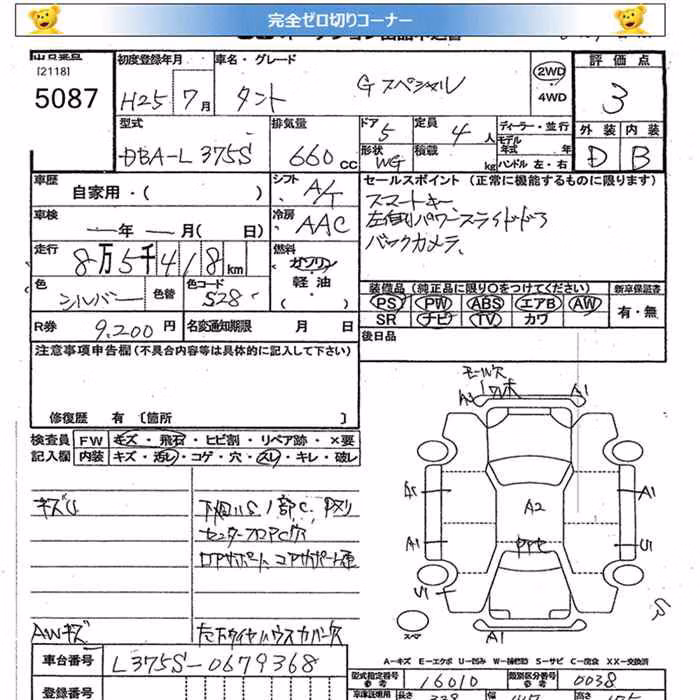 完全ゼロ切りコーナー
[2118]
5087
初度登録年月
H25 7月
車名・グレード
タント Gスペシャル
2WD
4WD
評価点
3
外装 内装
D B
型式
DBA-L375S
排気量
660cc
ドア 5
形状 WG
定員 4人
積載 kg
ディーラー・並行
モデル年式 年
ハンドル 左・右
車歴
自家用・( )
シフト
A/T
車検
年 月( 日)
冷房
AAC
セールスポイント (正常に機能するものに限ります)
スマートキー
左側パワースライドドア
バックカメラ
走行
8万5千418km
燃料
ガソリン
軽油
・( )
色
シルバー
色替
色コード
S28
装備品(純正品に限り○をつけてください)
PS PW ABS エアB AW
SR ナビ TV カワ
新車保証書
有・無
R券 9,200円
名変通知期限 月 日
後日品
注意事項申告欄(不具合内容等は具体的に記入して下さい)
修復歴 有 [箇所 ]
検査員
記入欄
FW キズ・飛石・ヒビ割・リペア跡・×要
内装 キズ・汚レ・コゲ・穴・スレ・キレ・破レ
キズU
下回りS 1部C、Pヌリ
センターフロアPC穴
AWキズ
左下タイヤハウスカバー欠
モール欠
A1
A2
A1
A1
A1
U1
A1
スペア
A-キズ E-エクボ U-凹み W-補修跡 S-サビ C-腐食 XX-交換済
車台番号
L375S-0679368
登録番号
型式指定番号
参考
16010
類別区分番号
参考
0038
長さ
高さ